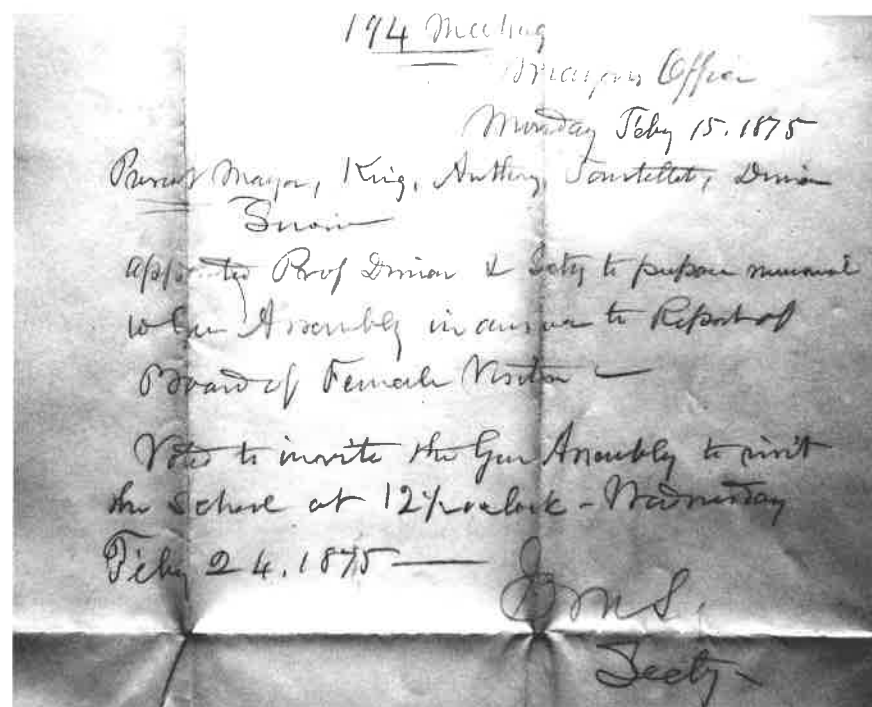 194 Meeting
Mayors Office
Monday Feby 15. 1875
Present Mayor, King, Anthony, Toustellot, Diman
Snow
appointed Prof Diman & Secty to prepare memorial
to Gen Assembly in answer to Report of
Board of Female Visitors —
Voted to invite the Gen Assembly to visit
the School at 12½ oclock - Wednesday
Feby 24. 1875 —
Secty -